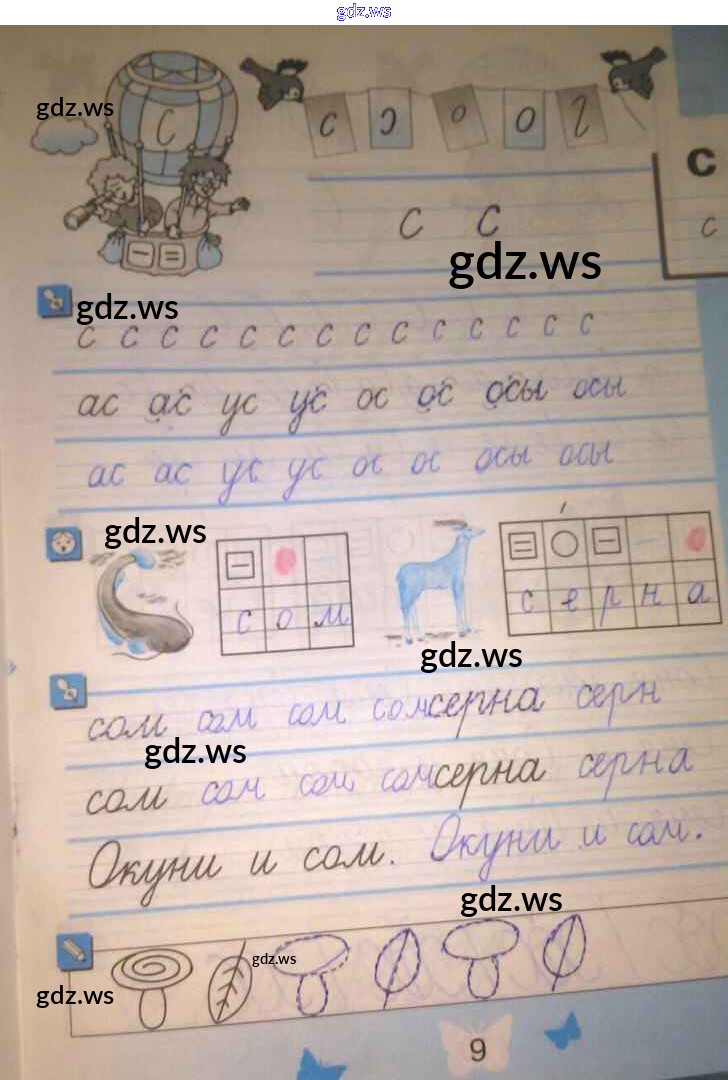 gdz.ws
gdz.ws
с
с с
с
с
gdz.ws
gdz.ws
с с с с с с с с с с с с с с
ас ас ус ус ос ос осы осы
ас ас ус ус ос ос осы осы
gdz.ws
с о м
с е р н а
gdz.ws
сом сом сом сом серна серн
gdz.ws
сом сом сом сом серна серна
Окуни и сом. Окуни и сом.
gdz.ws
gdz.ws
gdz.ws
9